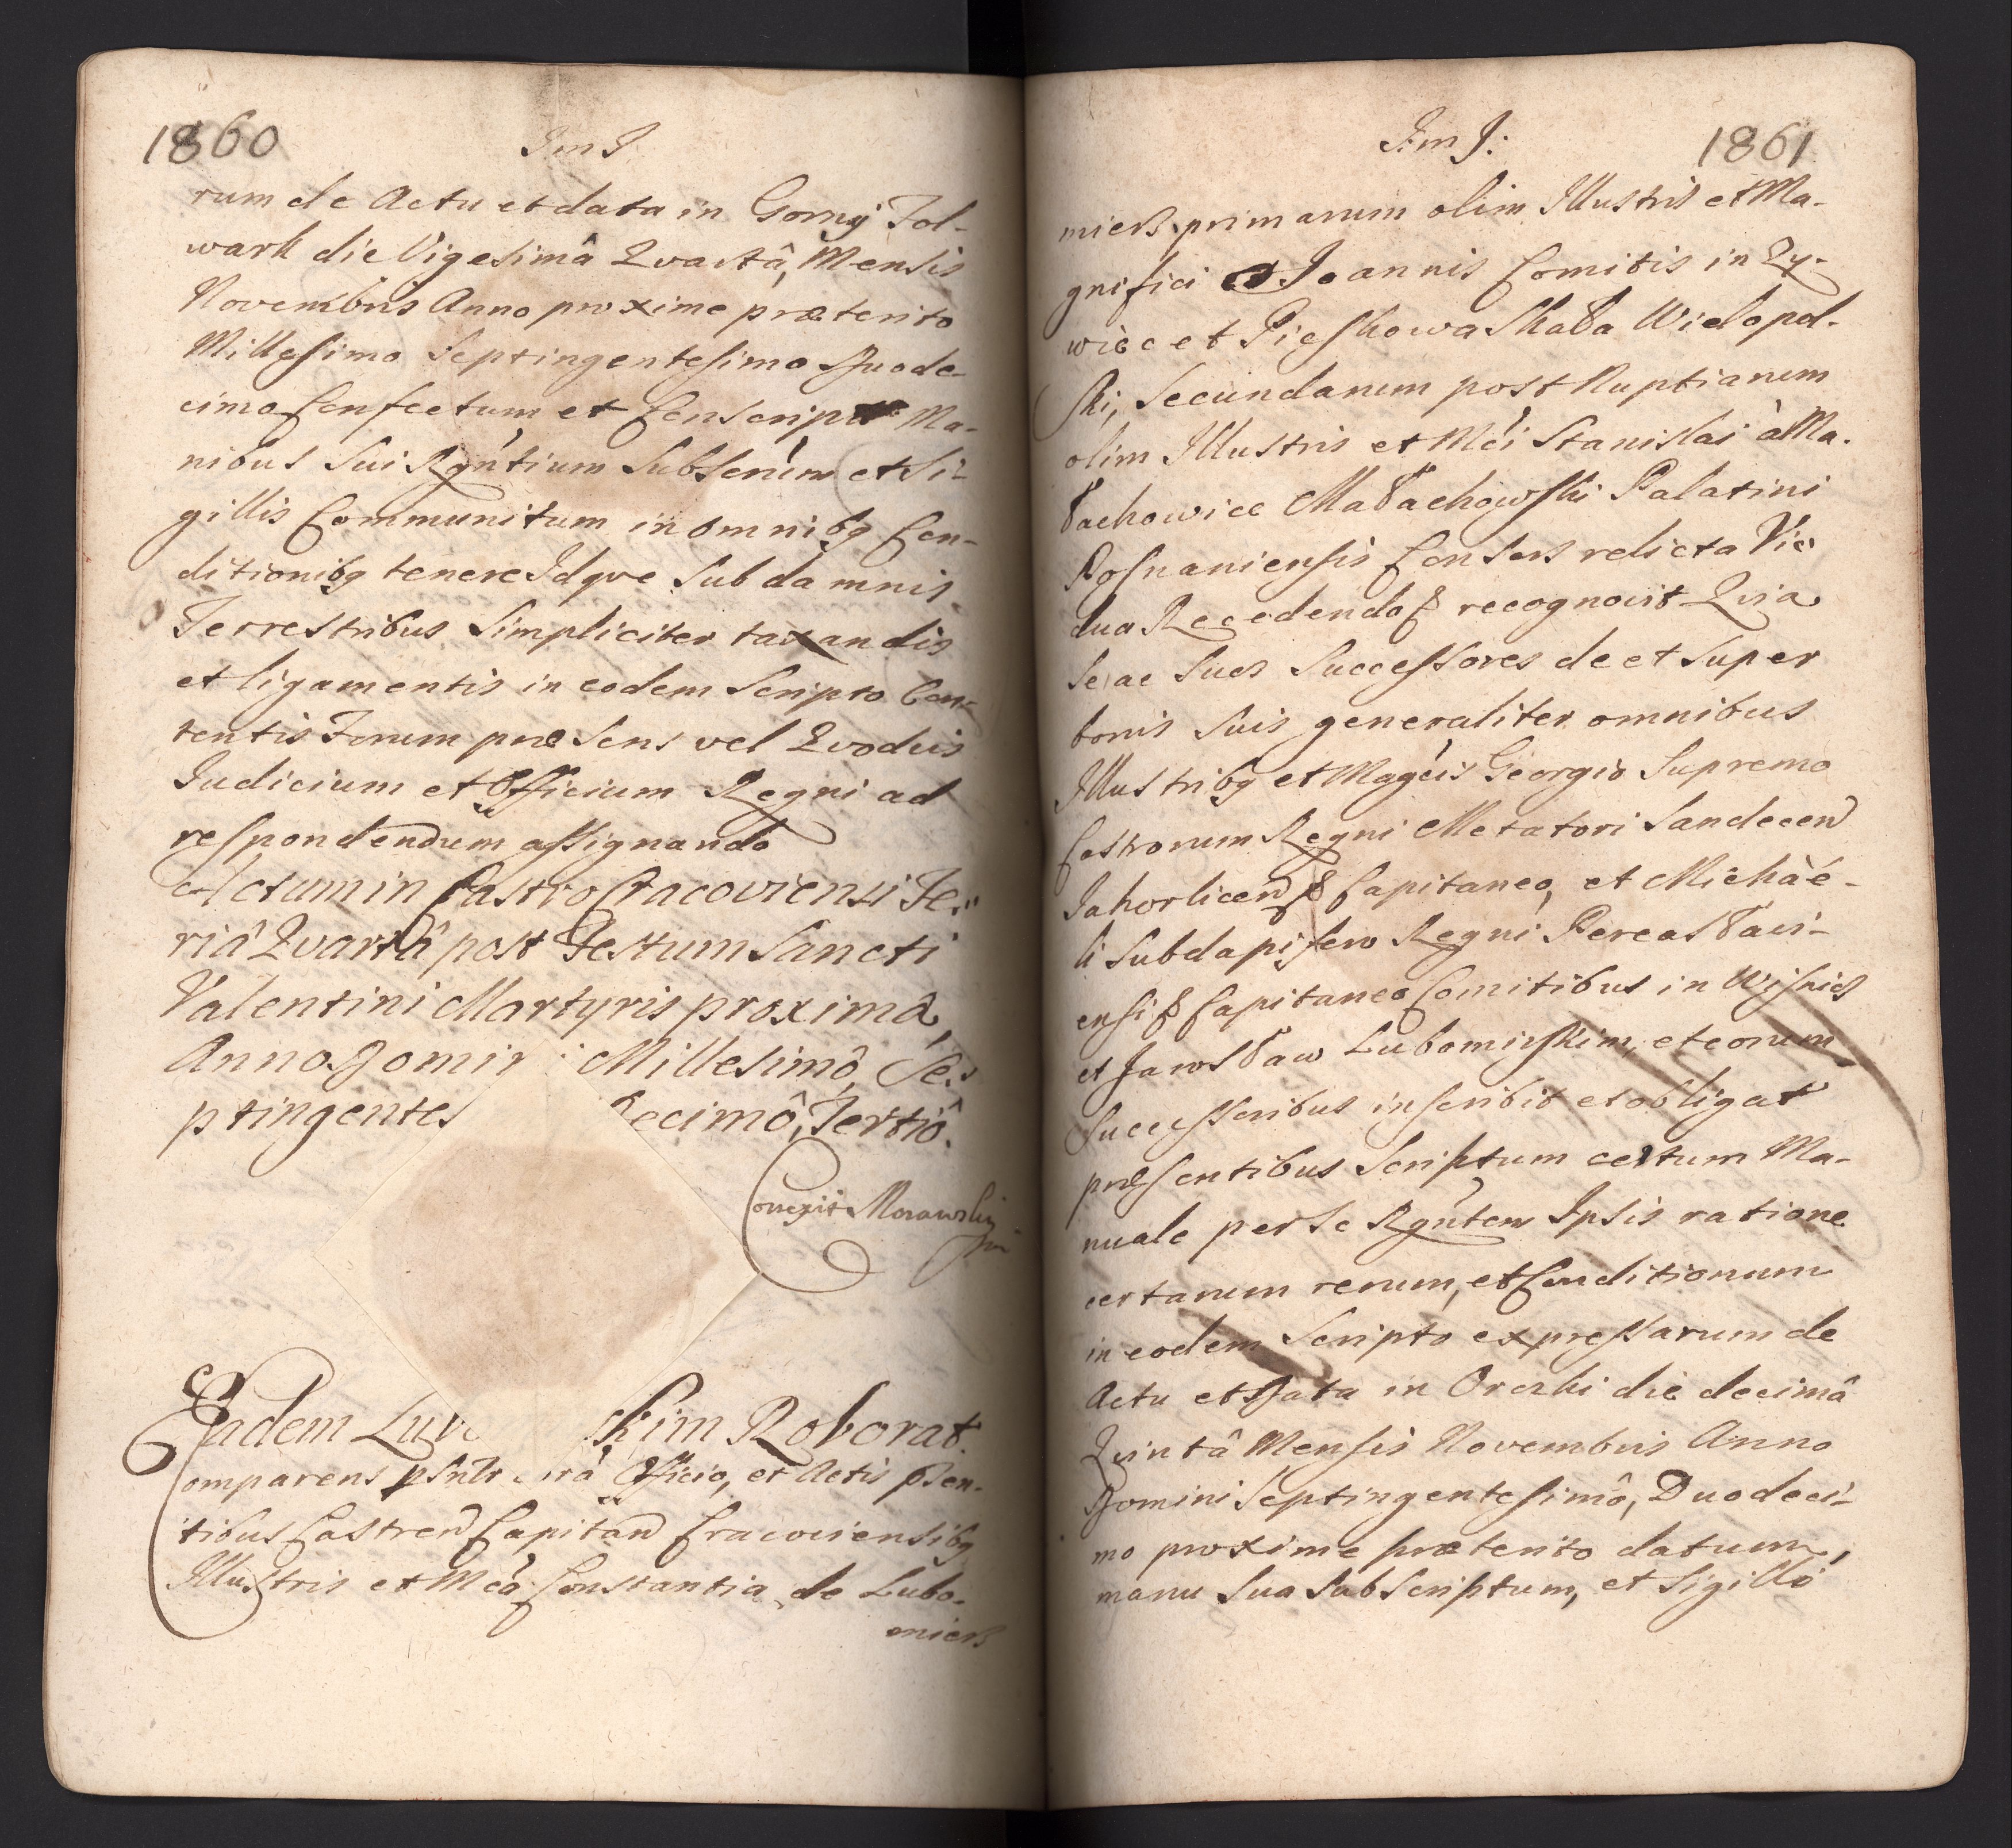 1860
rum de Actu et data in Gorny Fol-
wark die Vigesimâ Qvartâ, Mensis
Novembris Anno proxime præterito
Millesimo Septingentesimo Duode-
cimo Confectum et Ma-
nibus Sui Rgńtium Subscrim et Si-
gillis Communitum in omnibq Con-
ditionibq tenere Idqve Sub damnis
Terrestribus Simpliciter taxandis
et ligamentis in eodem Scripto Con-
tentis Forum præsens vel Qvoduis
Judicium et Officium Regni ad
respondendum assignando
Actum in Castro Cracoviensi Fe-
riâ Qvartâ post Festum Sancti
Valentini Martyris proximâ,
Anno Domi Millesimô, Se-
ptingentes ecimô, Tertiô.
Correxit Morawski
Eadem Lu skim Roborat.
omparens Officio, et Actis
tibus Castren Capitan Cracoviensibq
Illustris et Mca Constantia de Lubo-
miers
1861
miers primarum olim Illustris et Ma-
gnifici Joannis Comitis in Zy-
wiec et Pieskowa Skała Wielopol-
ski, Secundarum post Nuptiarum
olim Illustris et Mci Stanislai à Ma-
łachowice Małachowski Palatini
Posnaniensis Consors relicta Vi-
dua Recedendo recognovit Qvia
Se ac Suos Successores de et Super
bonis Suis generaliter omnibus
Illustribq et Magcis Georgio Supremo
Castrorum Regni Metatori Sandecen
Jahorlicen Capitaneo, et Michàé-
li Subdapifero Regni Pereasławi-
ensi Capitaneo Comitibus in Wisnicz
et Jarosław Lubomirskim, et eorum
Successoribus inscribit et obligat
præsentibus Scriptum certum Ma-
nuale per Se Rgńtem Ipsis ratione
certarum rerum, et Conditionum
in eodem Scripto expressarum de
Actu et Data in Orczki die decimâ
Qvintâ Mensis Novembris Anno
Domini Septingentesimô, Duodeci-
mo proxime præterito datum,
manu Sua Subscriptum, et Sigillo